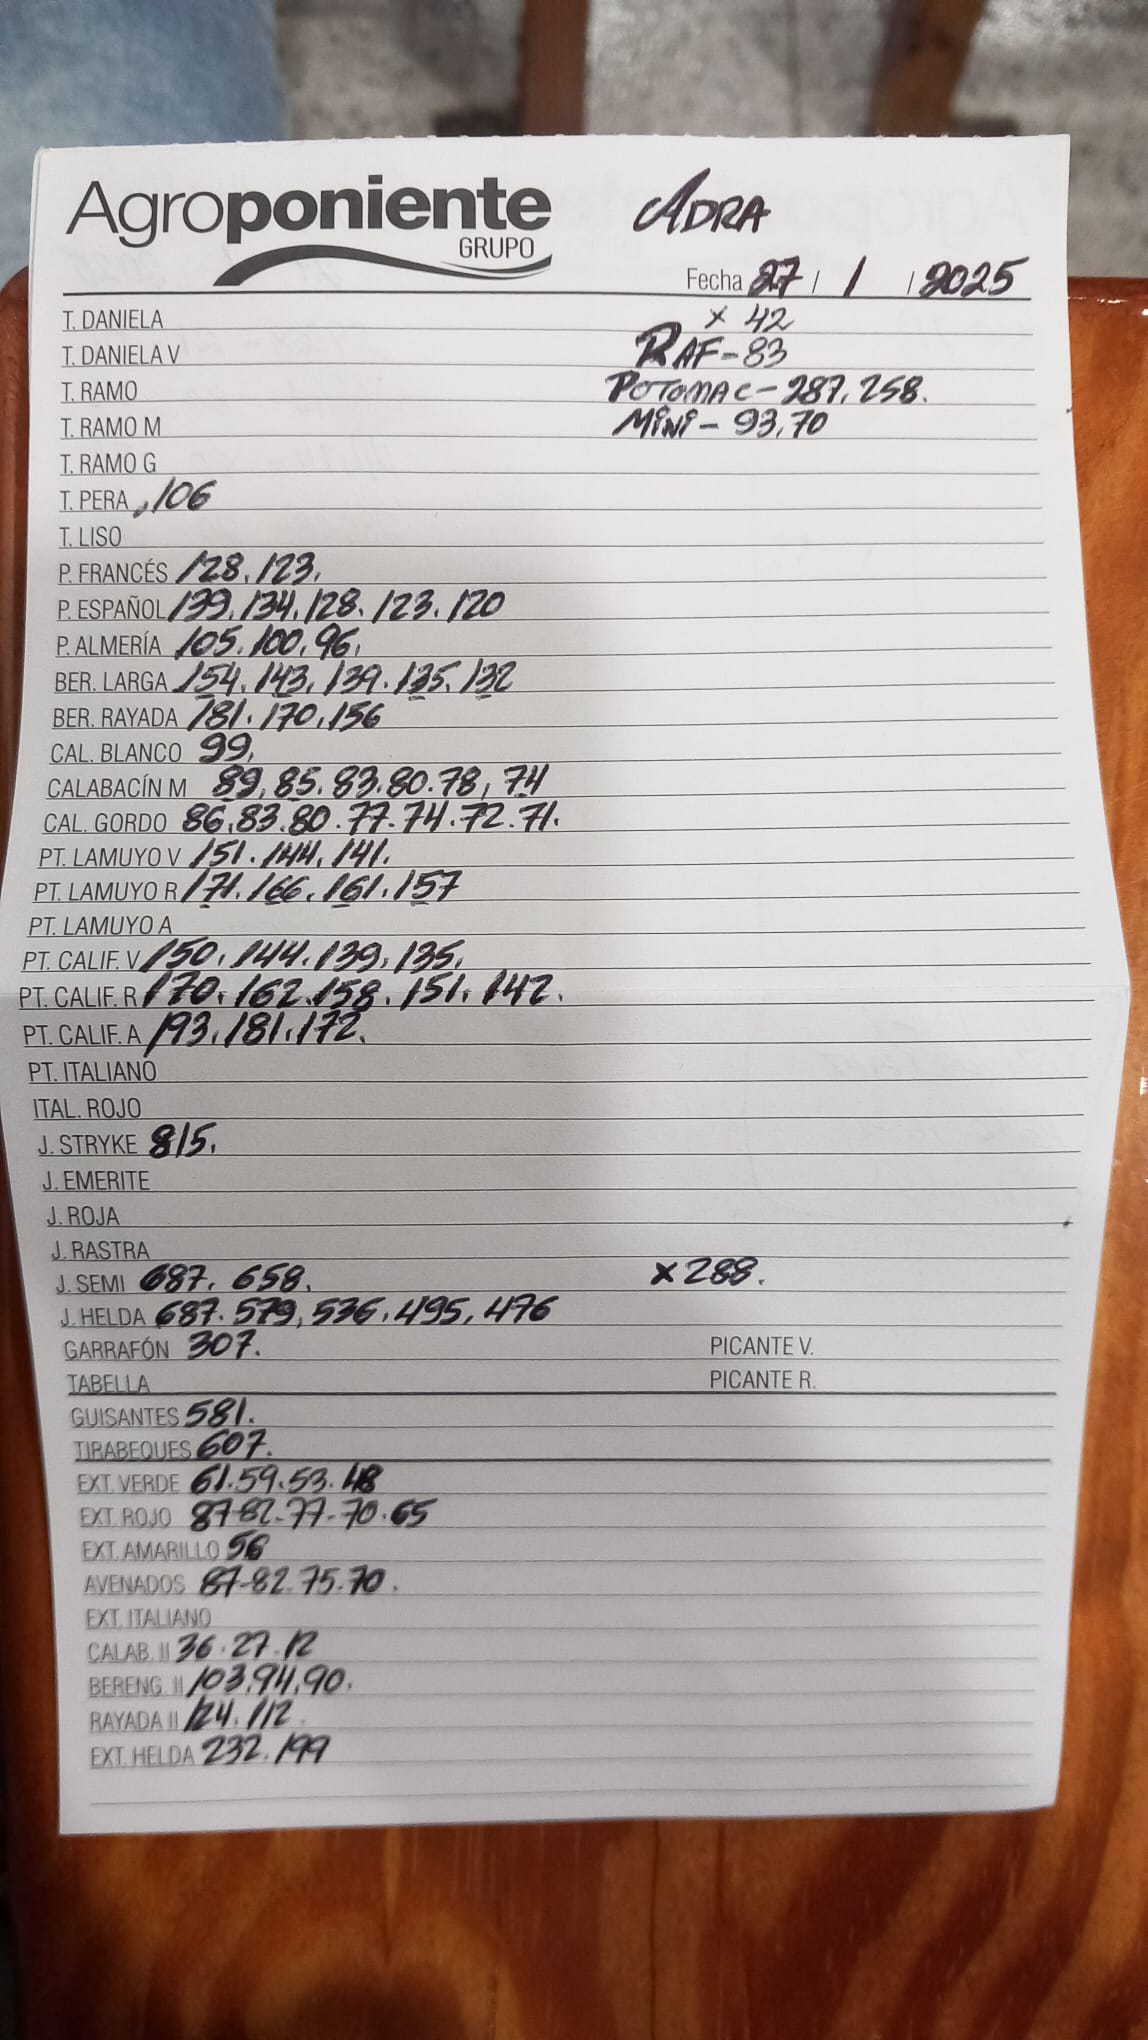 Agroponiente
GRUPO
ADRA
Fecha 27 / 1 / 2025
T. DANIELA x 42
T. DANIELA V RAF-83
T. RAMO POTOMAC-287, 258.
T. RAMO M MINI-93, 70
T. RAMO G
T. PERA , 106
T. LISO
P. FRANCÉS 128, 123,
P. ESPAÑOL 139, 134, 128. 123. 120
P. ALMERÍA 105. 100, 96,
BER. LARGA 154. 143, 139. 135, 132
BER. RAYADA 181. 170, 156
CAL. BLANCO 99,
CALABACÍN M 89, 85. 83. 80. 78, 74
CAL. GORDO 86, 83. 80. 77. 74. 72. 71.
PT. LAMUYO V 151. 144, 141.
PT. LAMUYO R 171. 166. 161. 157
PT. LAMUYO A
PT. CALIF. V 150, 144. 139, 135,
PT. CALIF. R 170. 162. 158. 151. 142.
PT. CALIF. A 193, 181, 172.
PT. ITALIANO
ITAL. ROJO
J. STRYKE 815.
J. EMERITE
J. ROJA
J. RASTRA
J. SEMI 687. 658, x 288.
J. HELDA 687. 579, 536, 495, 476
GARRAFÓN 307. PICANTE V.
TABELLA PICANTE R.
GUISANTES 581.
TIRABEQUES 607.
EXT. VERDE 61. 59. 53. 48
EXT. ROJO 87-82-77-70. 65
EXT. AMARILLO 56
AVENADOS 87-82. 75. 70.
EXT. ITALIANO
CALAB. II 36. 27. 12
BERENG. II 103, 94, 90.
RAYADA II 124. 112
EXT. HELDA 232. 199